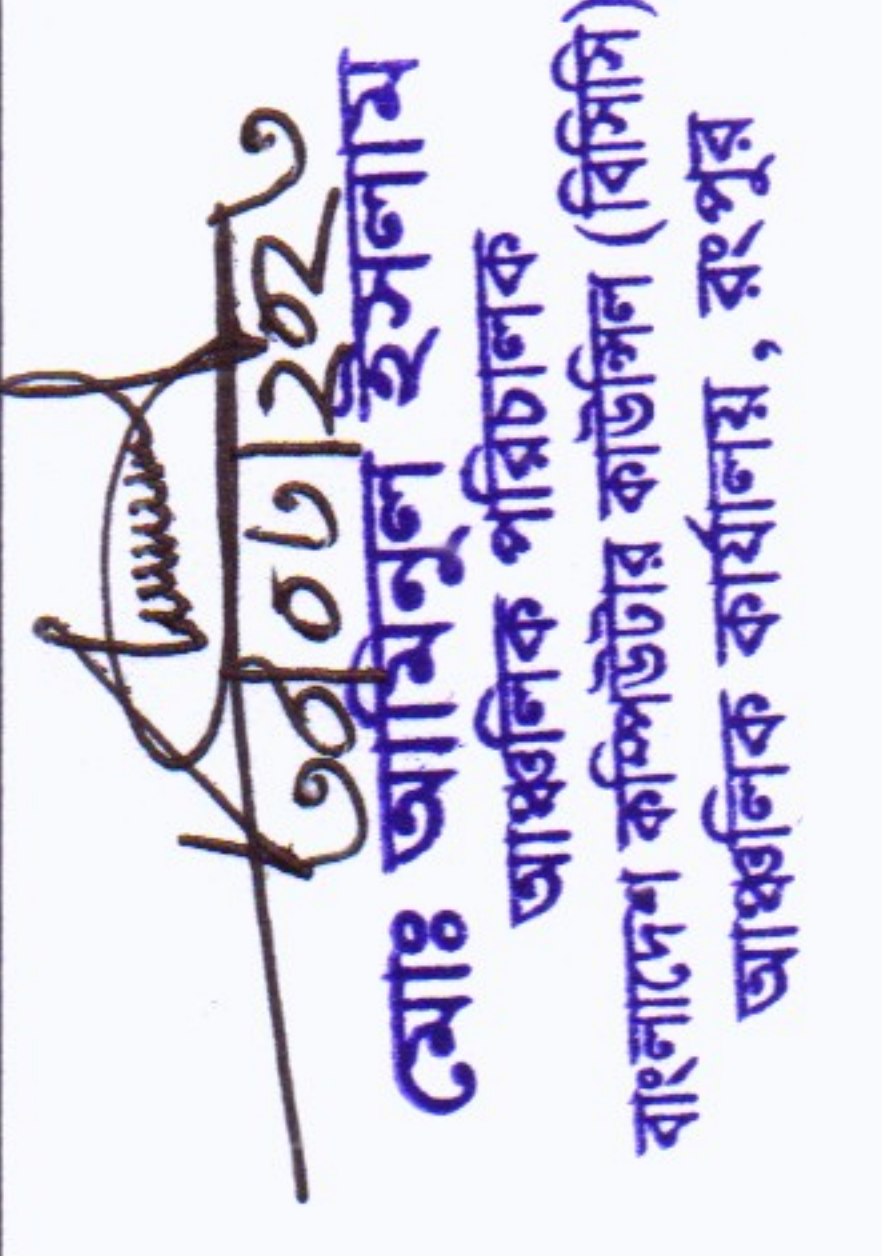 ৩০|০৩|২০২৩
মোঃ আমিনুল ইসলাম
আঞ্চলিক পরিচালক
বাংলাদেশ কম্পিউটার কাউন্সিল (বিসিসি)
আঞ্চলিক কার্যালয়, রংপুর